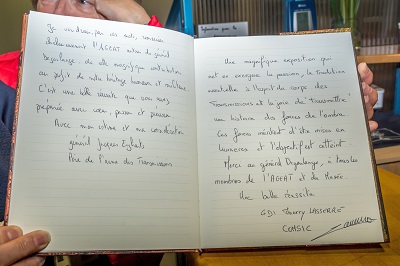 Je
par ces mots, remercier
chaleureusement l'AGEAT autour du général
Degoulange, de cette magnifique contribution
au profit de notre héritage humain et
C'est une belle réussite que vous avez
préparée avec cœur, passion et
Avec mon estime et ma considération
général Jacques
Père de l'arme des Transmissions
Une magnifique exposition qui
met en exergue la passion, la tradition
essentielle à l'esprit de corps des
Transmissions et la joie de transmettre
un histoire des forces de l'ombre.
Ces forces méritent d'être mises en
lumière et l'objectif est atteint.
Merci au général Degoulange, à tous les
membres de l'AGEAT et du Musée
Une belle réussite
GDI Thierry LASSERRE
COMSIC